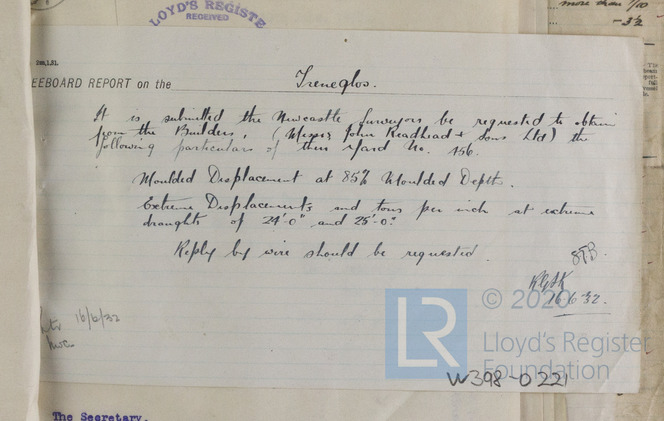 LLOYD'S REGISTE
RECEIVED
more than 1/00
-3½
EEBOARD REPORT on the Treneglos.
It is submitted the Newcastle Surveyors be requested to obtain
from the Builders, (Messrs John Readhead & Sons Ltd) the
following particulars of their Yard No. 456.
Moulded Displacement at 85% Moulded Depth.
Extreme Displacements and tons per inch at extreme
draughts of 24'-0" and 25'-0".
Reply by wire should be requested.
16.6.32.
16/6/32
LR
© 2020
Lloyd's Register
Foundation
W398-0221
The Secretary.